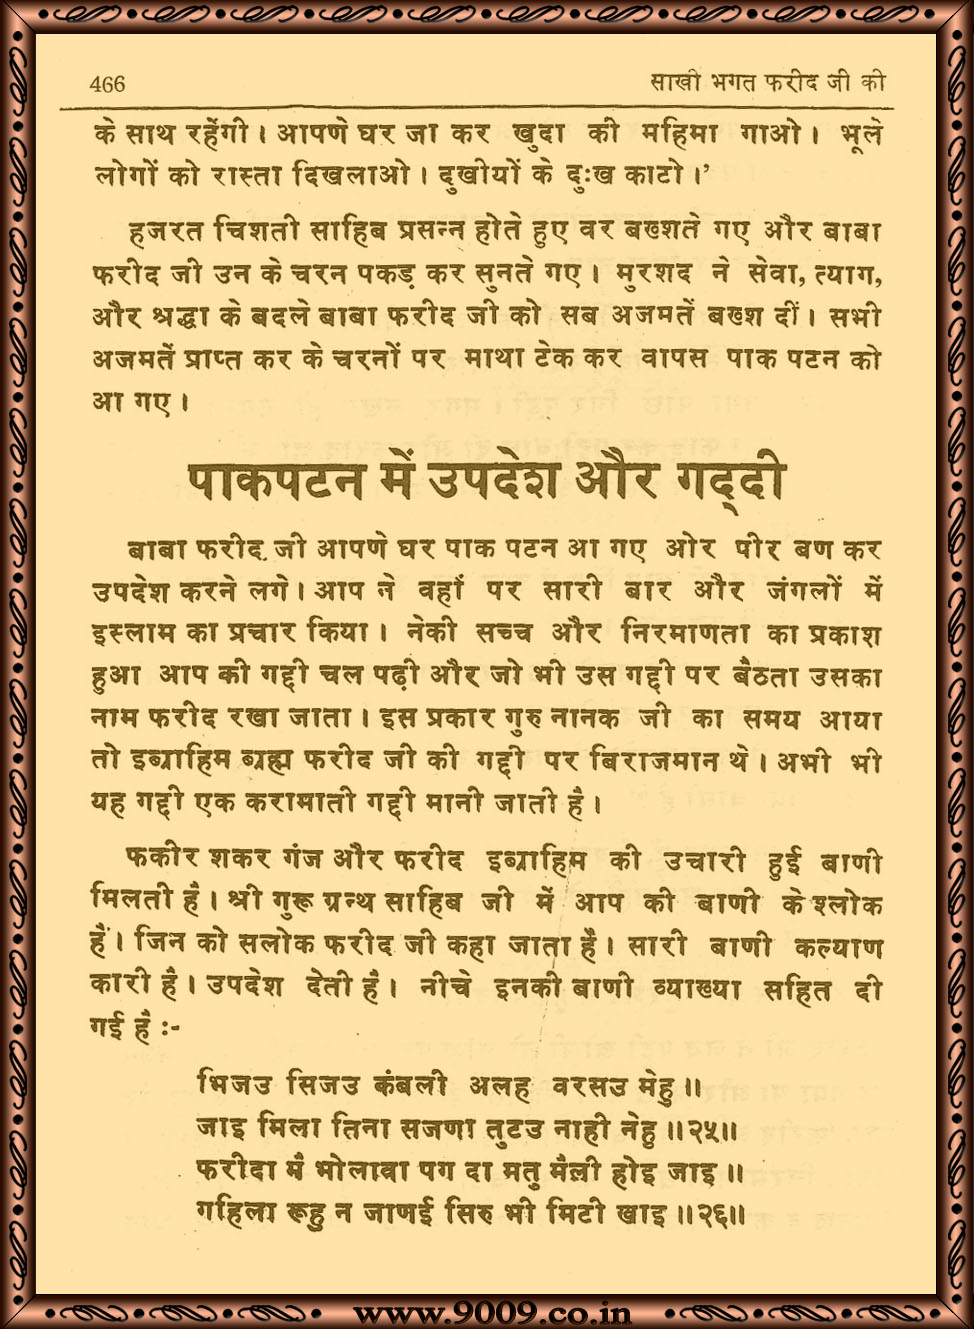 466 साखी भगत फरीद जी की
के साथ रहेंगी। आपणे घर जा कर खुदा की महिमा गाओ। भूले
लोगों को रास्ता दिखलाओ। दुखीयों के दुःख काटो।’
हजरत चिशती साहिब प्रसन्न होते हुए वर बख्शते गए और बाबा
फरीद जी उन के चरन पकड़ कर सुनते गए। मुरशद ने सेवा, त्याग,
और श्रद्धा के बदले बाबा फरीद जी को सब अजमतें बख्श दीं। सभी
अजमतें प्राप्त कर के चरनों पर माथा टेक कर वापस पाक पटन को
आ गए।
पाकपटन में उपदेश और गद्दी
बाबा फरीद जी आपणे घर पाक पटन आ गए ओर पीर बण कर
उपदेश करने लगे। आप ने वहां पर सारी बार और जंगलों में
इस्लाम का प्रचार किया। नेकी सच्च और निरमाणता का प्रकाश
हुआ आप की गद्दी चल पढ़ी और जो भी उस गद्दी पर बैठता उसका
नाम फरीद रखा जाता। इस प्रकार गुरु नानक जी का समय आया
तो इब्राहिम ब्रह्म फरीद जी की गद्दी पर बिराजमान थे। अभी भी
यह गद्दी एक करामाती गद्दी मानी जाती है।
फकीर शकर गंज और फरीद इब्राहिम की उचारी हुई बाणी
मिलती है। श्री गुरू ग्रन्थ साहिब जी में आप की बाणी के श्लोक
हैं। जिन को सलोक फरीद जी कहा जाता है। सारी बाणी कल्याण
कारी है। उपदेश देती है। नीचे इनकी बाणी व्याख्या सहित दी
गई है :-
भिजउ सिजउ कंबली अलह वरसउ मेहु॥
जाइ मिला तिना सजणा तुटउ नाही नेहु॥२५॥
फरीदा मै भोलावा पग दा मतु मैली होइ जाइ॥
गहिला रूहु न जाणई सिरु भी मिटी खाइ॥२६॥
www.9009.co.in